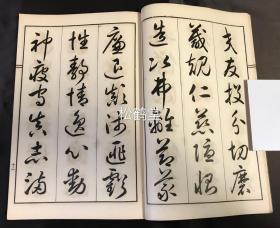 交友投分切磨
箴規仁慈隱惻
造次弗離節義
廉退顛沛匪虧
性靜情逸心動
神疲守真志滿
松鹤堂